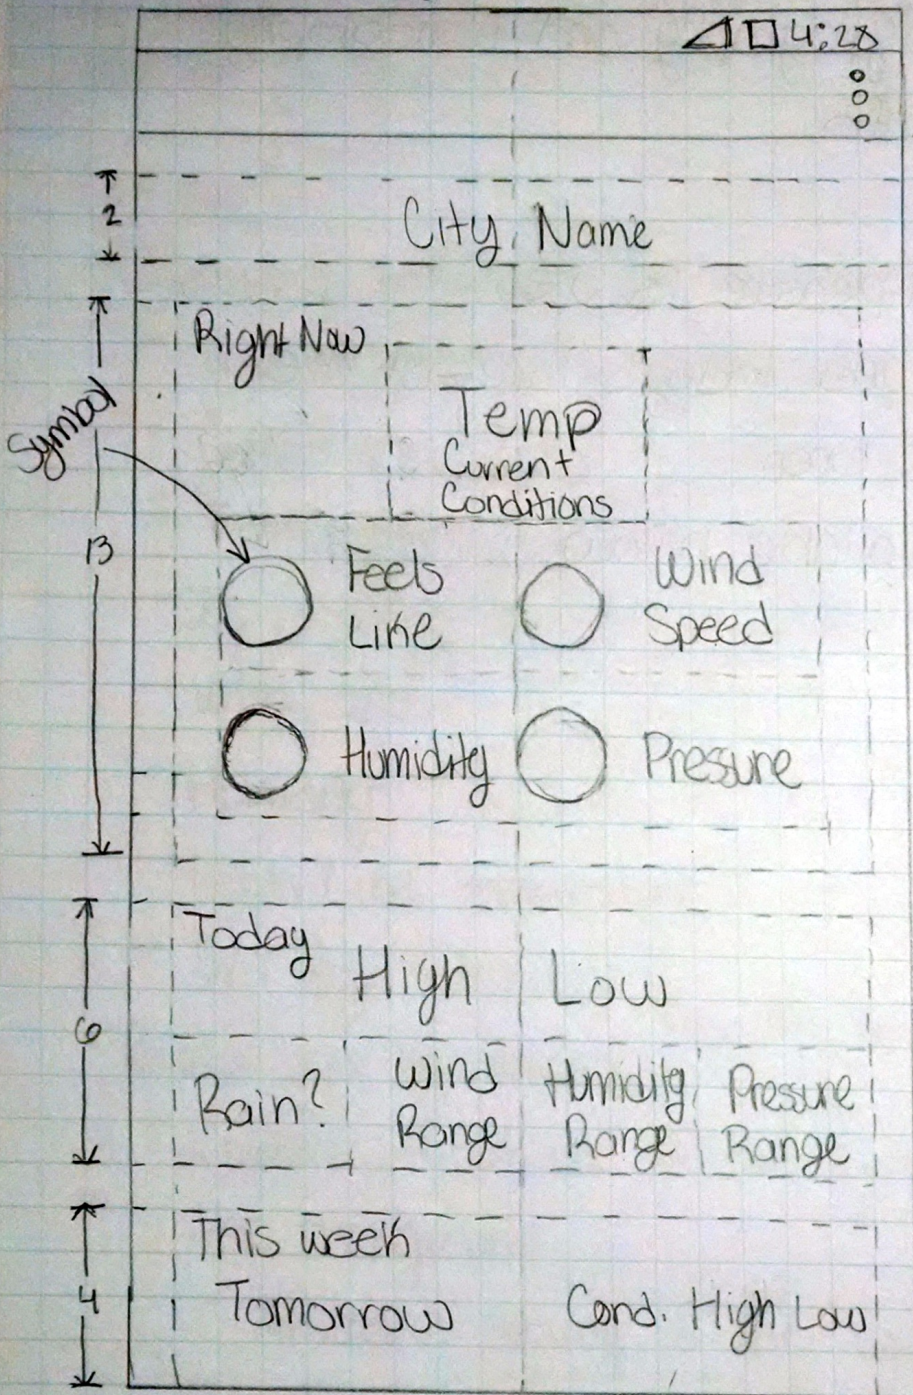 4:28
2
City Name
Right Now
Temp
Current
Conditions
Symbol
13
Feels
Like
Wind
Speed
Humidity
Pressure
Today
High Low
6
Rain?
Wind
Range
Humidity
Range
Pressure
Range
This week
4
Tomorrow Cond. High Low